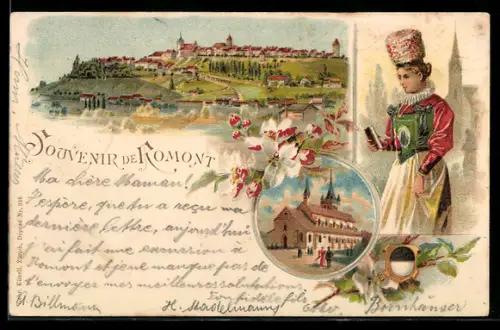 SOUVENIR DE ROMONT
Ma chère Maman!
J'espère, que tu a reçu ma
dernière lettre, aujourd'hui
j'ai fait une excursion à
Romont et je ne manque pas de
t'envoyer mes meilleures salutations
Ton fidèle fils
U. Billmann H. Stadelmann Otto Bornhäuser